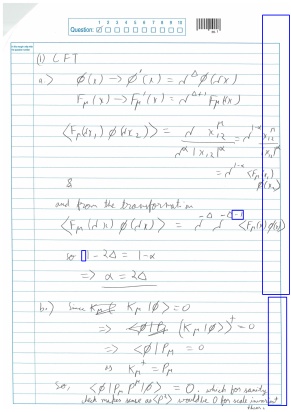 Question: 1 2 3 4 5 6 7 8 9 10
(1) CFT
a.) φ(x) → φ'(x) = λ^Δ φ(λx)
F_μ(x) → F_μ'(x) = λ^{Δ+1} F_μ(λx)
⟨F_μ(λx_1) φ(λx_2)⟩ = λ x_{12}^μ / λ^α |x_{12}|^α = λ^{1-α} x_{12}^μ / |x_{12}|^α
= λ^{1-α} ⟨F_μ(x_1) φ(x_2)⟩
&
and from the transformation
⟨F_μ(λx) φ(λx)⟩ = λ^{-Δ} λ^{-Δ-1} ⟨F_μ(x) φ(x)⟩
so 1 - 2Δ = 1-α
=> α = 2Δ
b.) Since K_μ|φ⟩ = 0
=> (K_μ|φ⟩)^† = 0
=> ⟨φ|P_μ = 0
as K_μ^† = P_μ
So, ⟨φ|P_μ P^μ|φ⟩ = 0. which for sanity
check makes sense as ⟨P²⟩ would be 0 for scale invariant
theory.